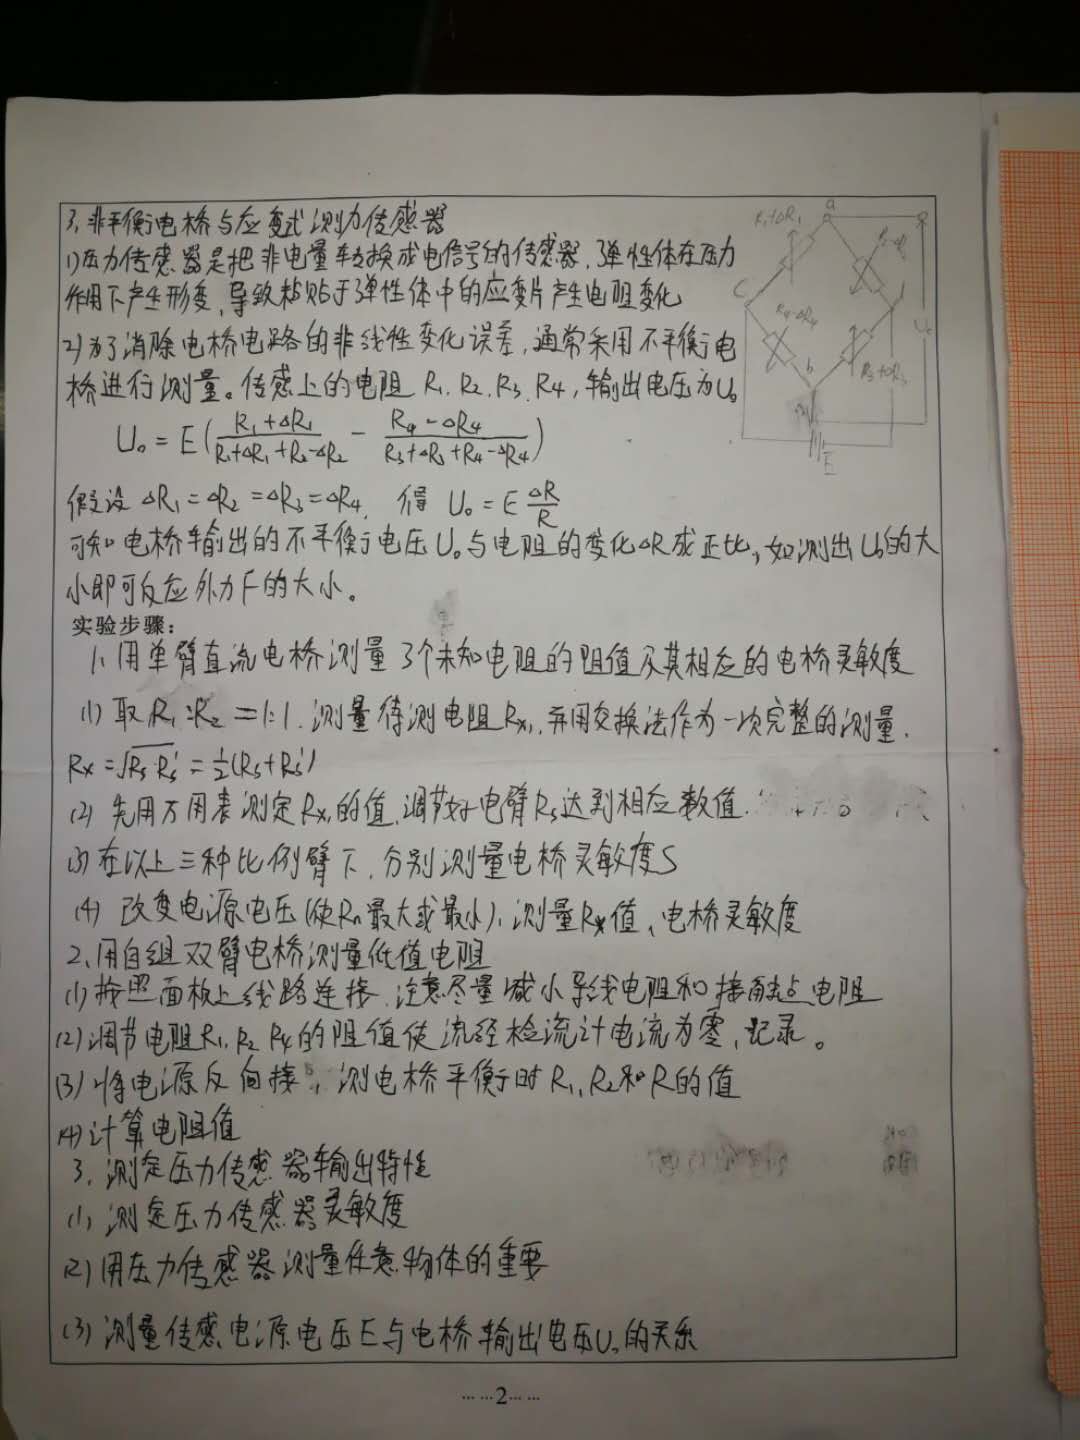 3、非平衡电桥与应变式测力传感器
1)压力传感器是把非电量转换成电信号的传感器,弹性体在压力
作用下产生形变,导致粘贴于弹性体中的应变片产生电阻变化
2)为了消除电桥电路的非线性变化误差,通常采用不平衡电
桥进行测量。传感上的电阻 R₁、R₂、R₃、R₄,输出电压为U₀
U₀ = E(\frac{R₁+ΔR₁}{R₁+ΔR₁+R₂-ΔR₂} - \frac{R₄-ΔR₄}{R₃+ΔR₃+R₄-ΔR₄})
假设 ΔR₁=ΔR₂=ΔR₃=ΔR₄, 得 U₀ = E\frac{ΔR}{R}
可知电桥输出的不平衡电压U₀与电阻的变化ΔR成正比,如测出U₀的大
小即可反应外力F的大小。
R₁+ΔR₁
a
C
R₄-ΔR₄
b
R₃+ΔR₃
E
实验步骤:
1、用单臂直流电桥测量3个未知电阻的阻值及其相应的电桥灵敏度
(1) 取R₁:R₂=1:1.测量待测电阻Rx₁,并用交换法作为一次完整的测量.
Rx=√Rs·Rs′=½(Rs+Rs′)
(2) 先用万用表测定Rx₁的值,调节好电臂Rs达到相应数值.
(3) 在以上三种比例臂下,分别测量电桥灵敏度S
(4) 改变电源电压(使Rn最大或最小),测量Rx值、电桥灵敏度
2、用自组双臂电桥测量低值电阻
(1) 按照面板上线路连接,注意尽量减小导线电阻和接触点电阻
(2) 调节电阻R₁、R₂、R₄的阻值使流经检流计电流为零,记录。
(3) 将电源反向接,测电桥平衡时R₁、R₂和R的值
(4) 计算电阻值
3、测定压力传感器输出特性
(1) 测定压力传感器灵敏度
(2) 用压力传感器测量任意物体的重要
(3) 测量传感电源电压E与电桥输出电压U₀的关系
……2……